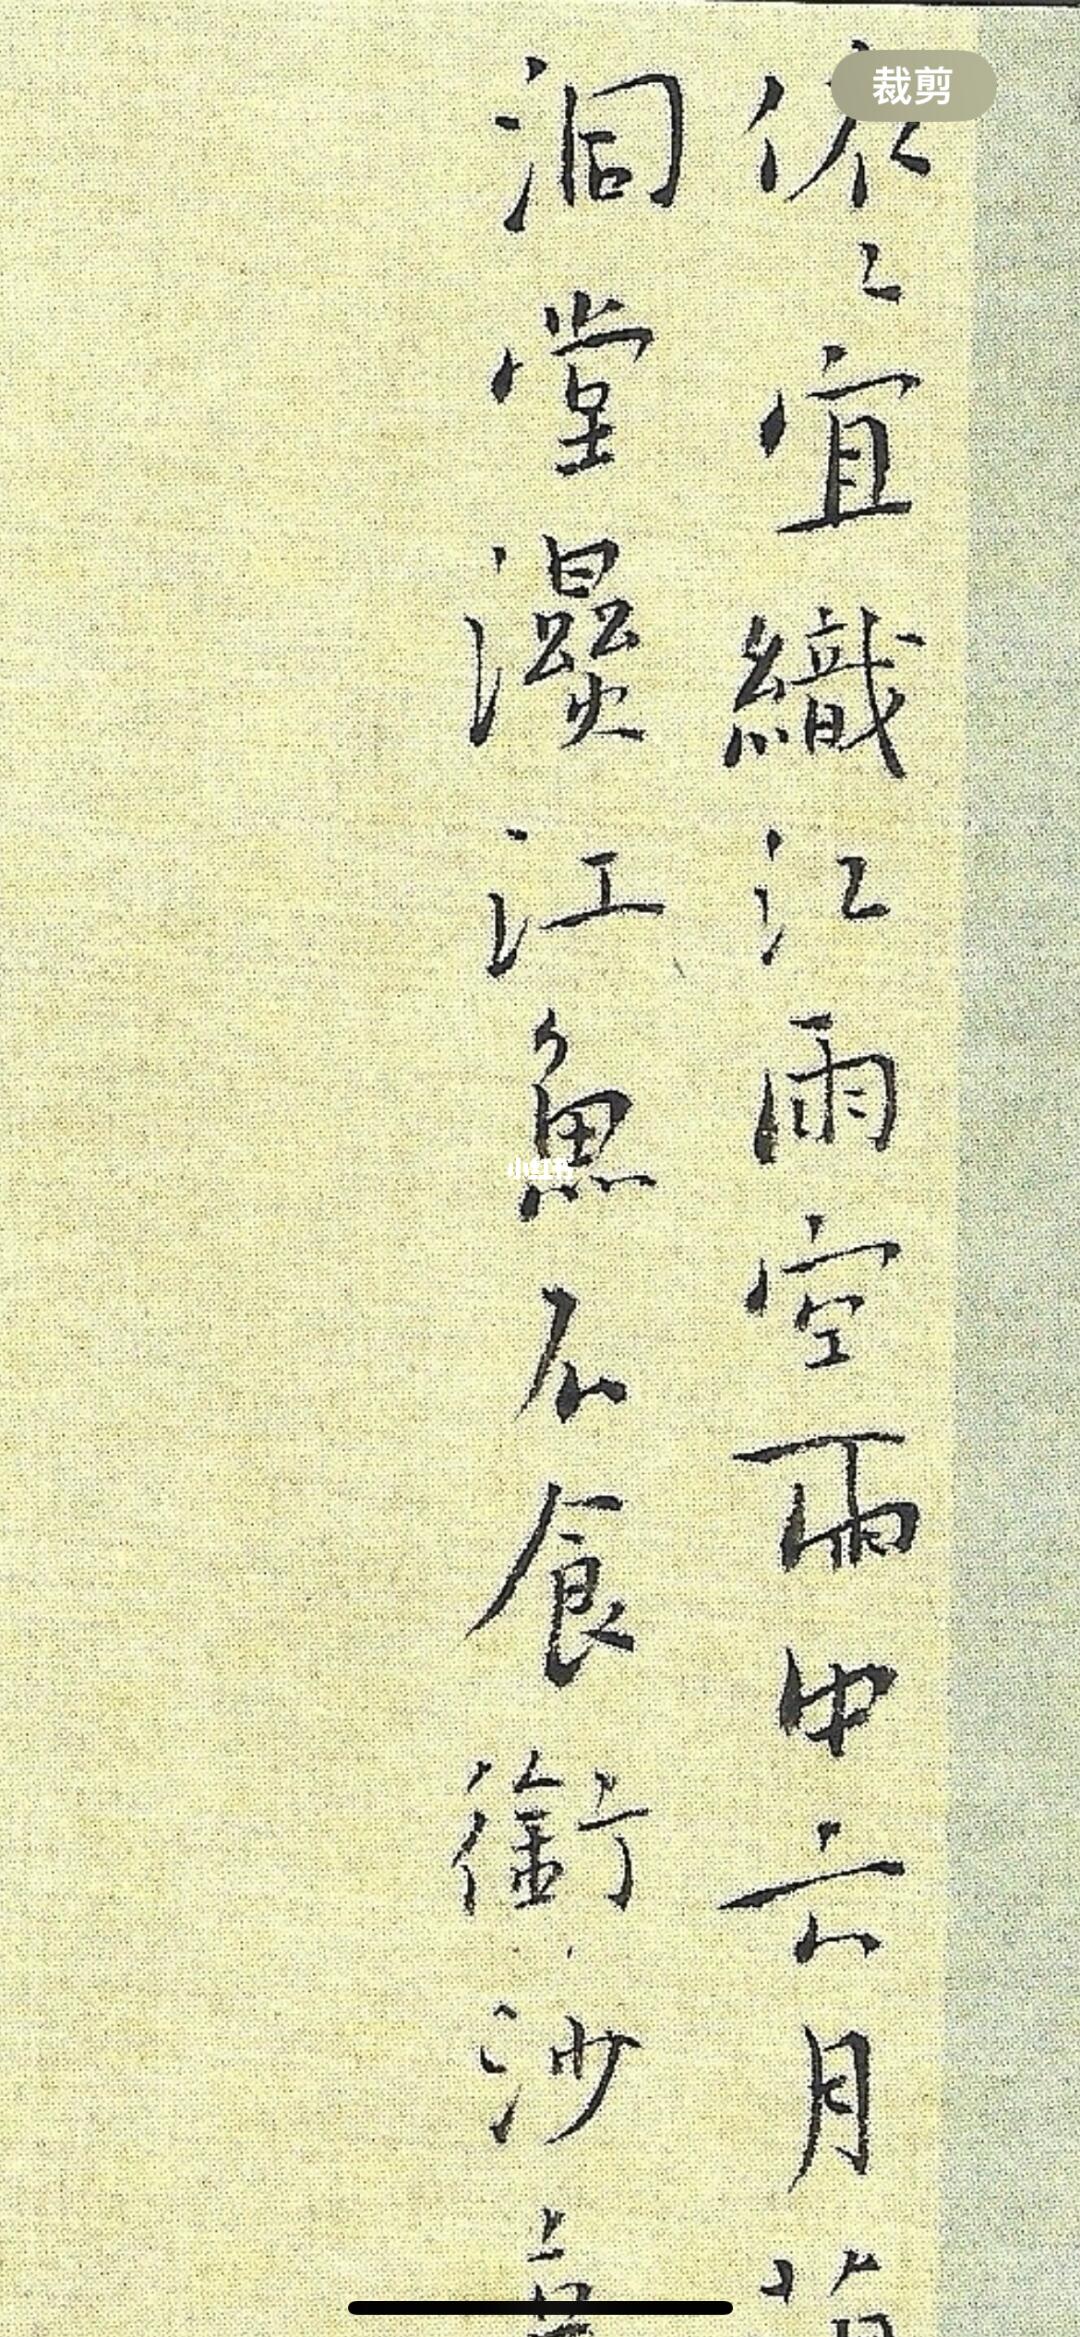 裁剪
依〻宜織江雨空雨中六月
洞堂濕江魚不食銜沙
小红书